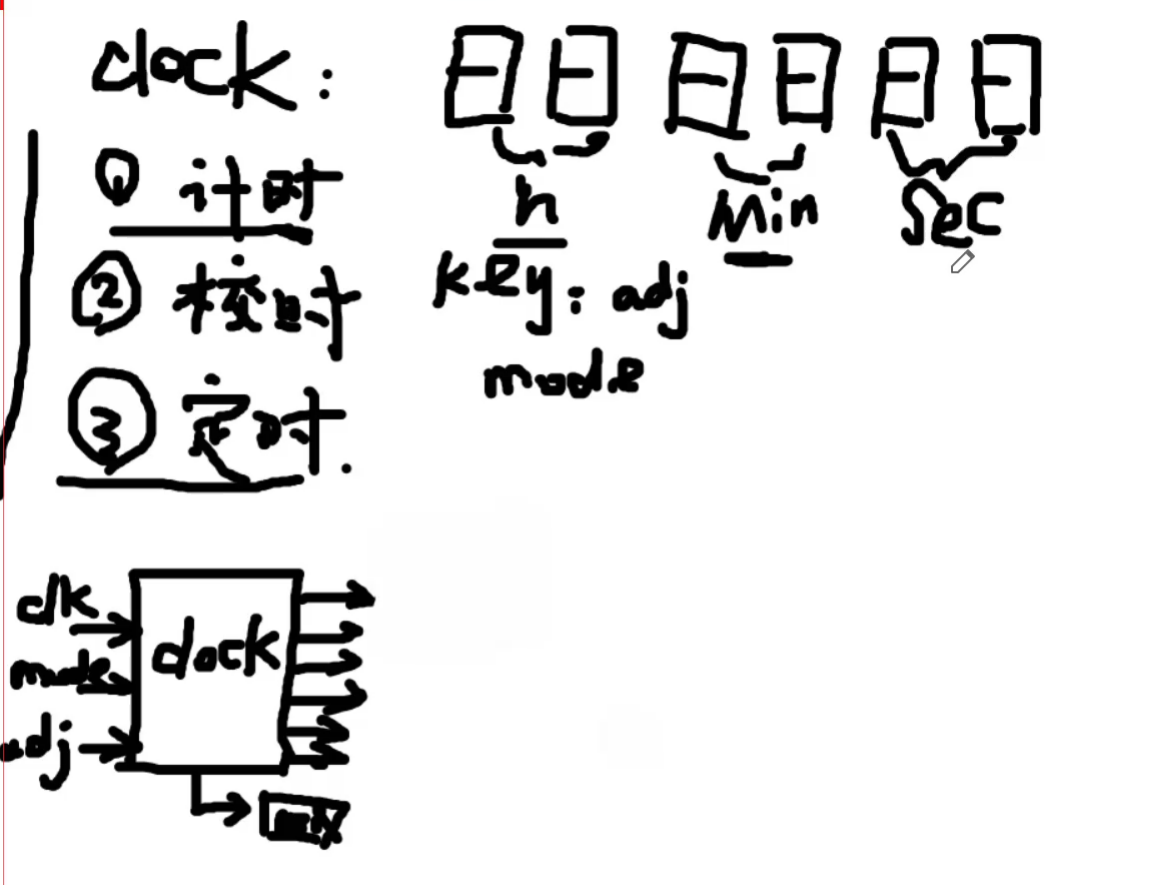 clock:
① 计时
② 校时
③ 定时.
日日 日日 日日
h min sec
key: adj
mode
clk
mode
adj
clock